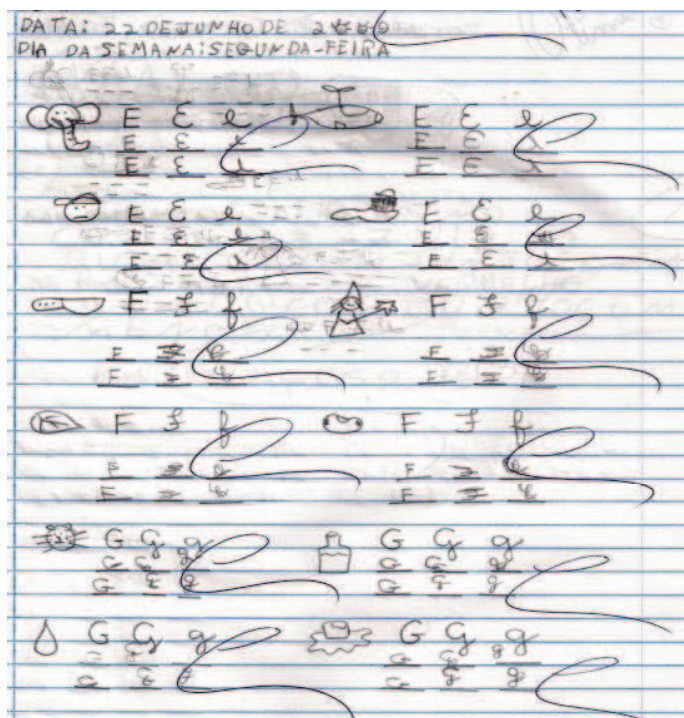 DATA: 22 DE JUNHO DE
DIA DA SEMANA: SEGUNDA-FEIRA
E E e E E e
E E e E E e
E E e E E e
E E e E E e
E E e E E
E E e E E e
F F f F F f
F F f F F f
F F f F F f
F F f F F f
F F f F F f
F F f F F f
G G g G G g
G G g G G g
G G g G G g
G G g G G g
G G g G G g
G G g G G g